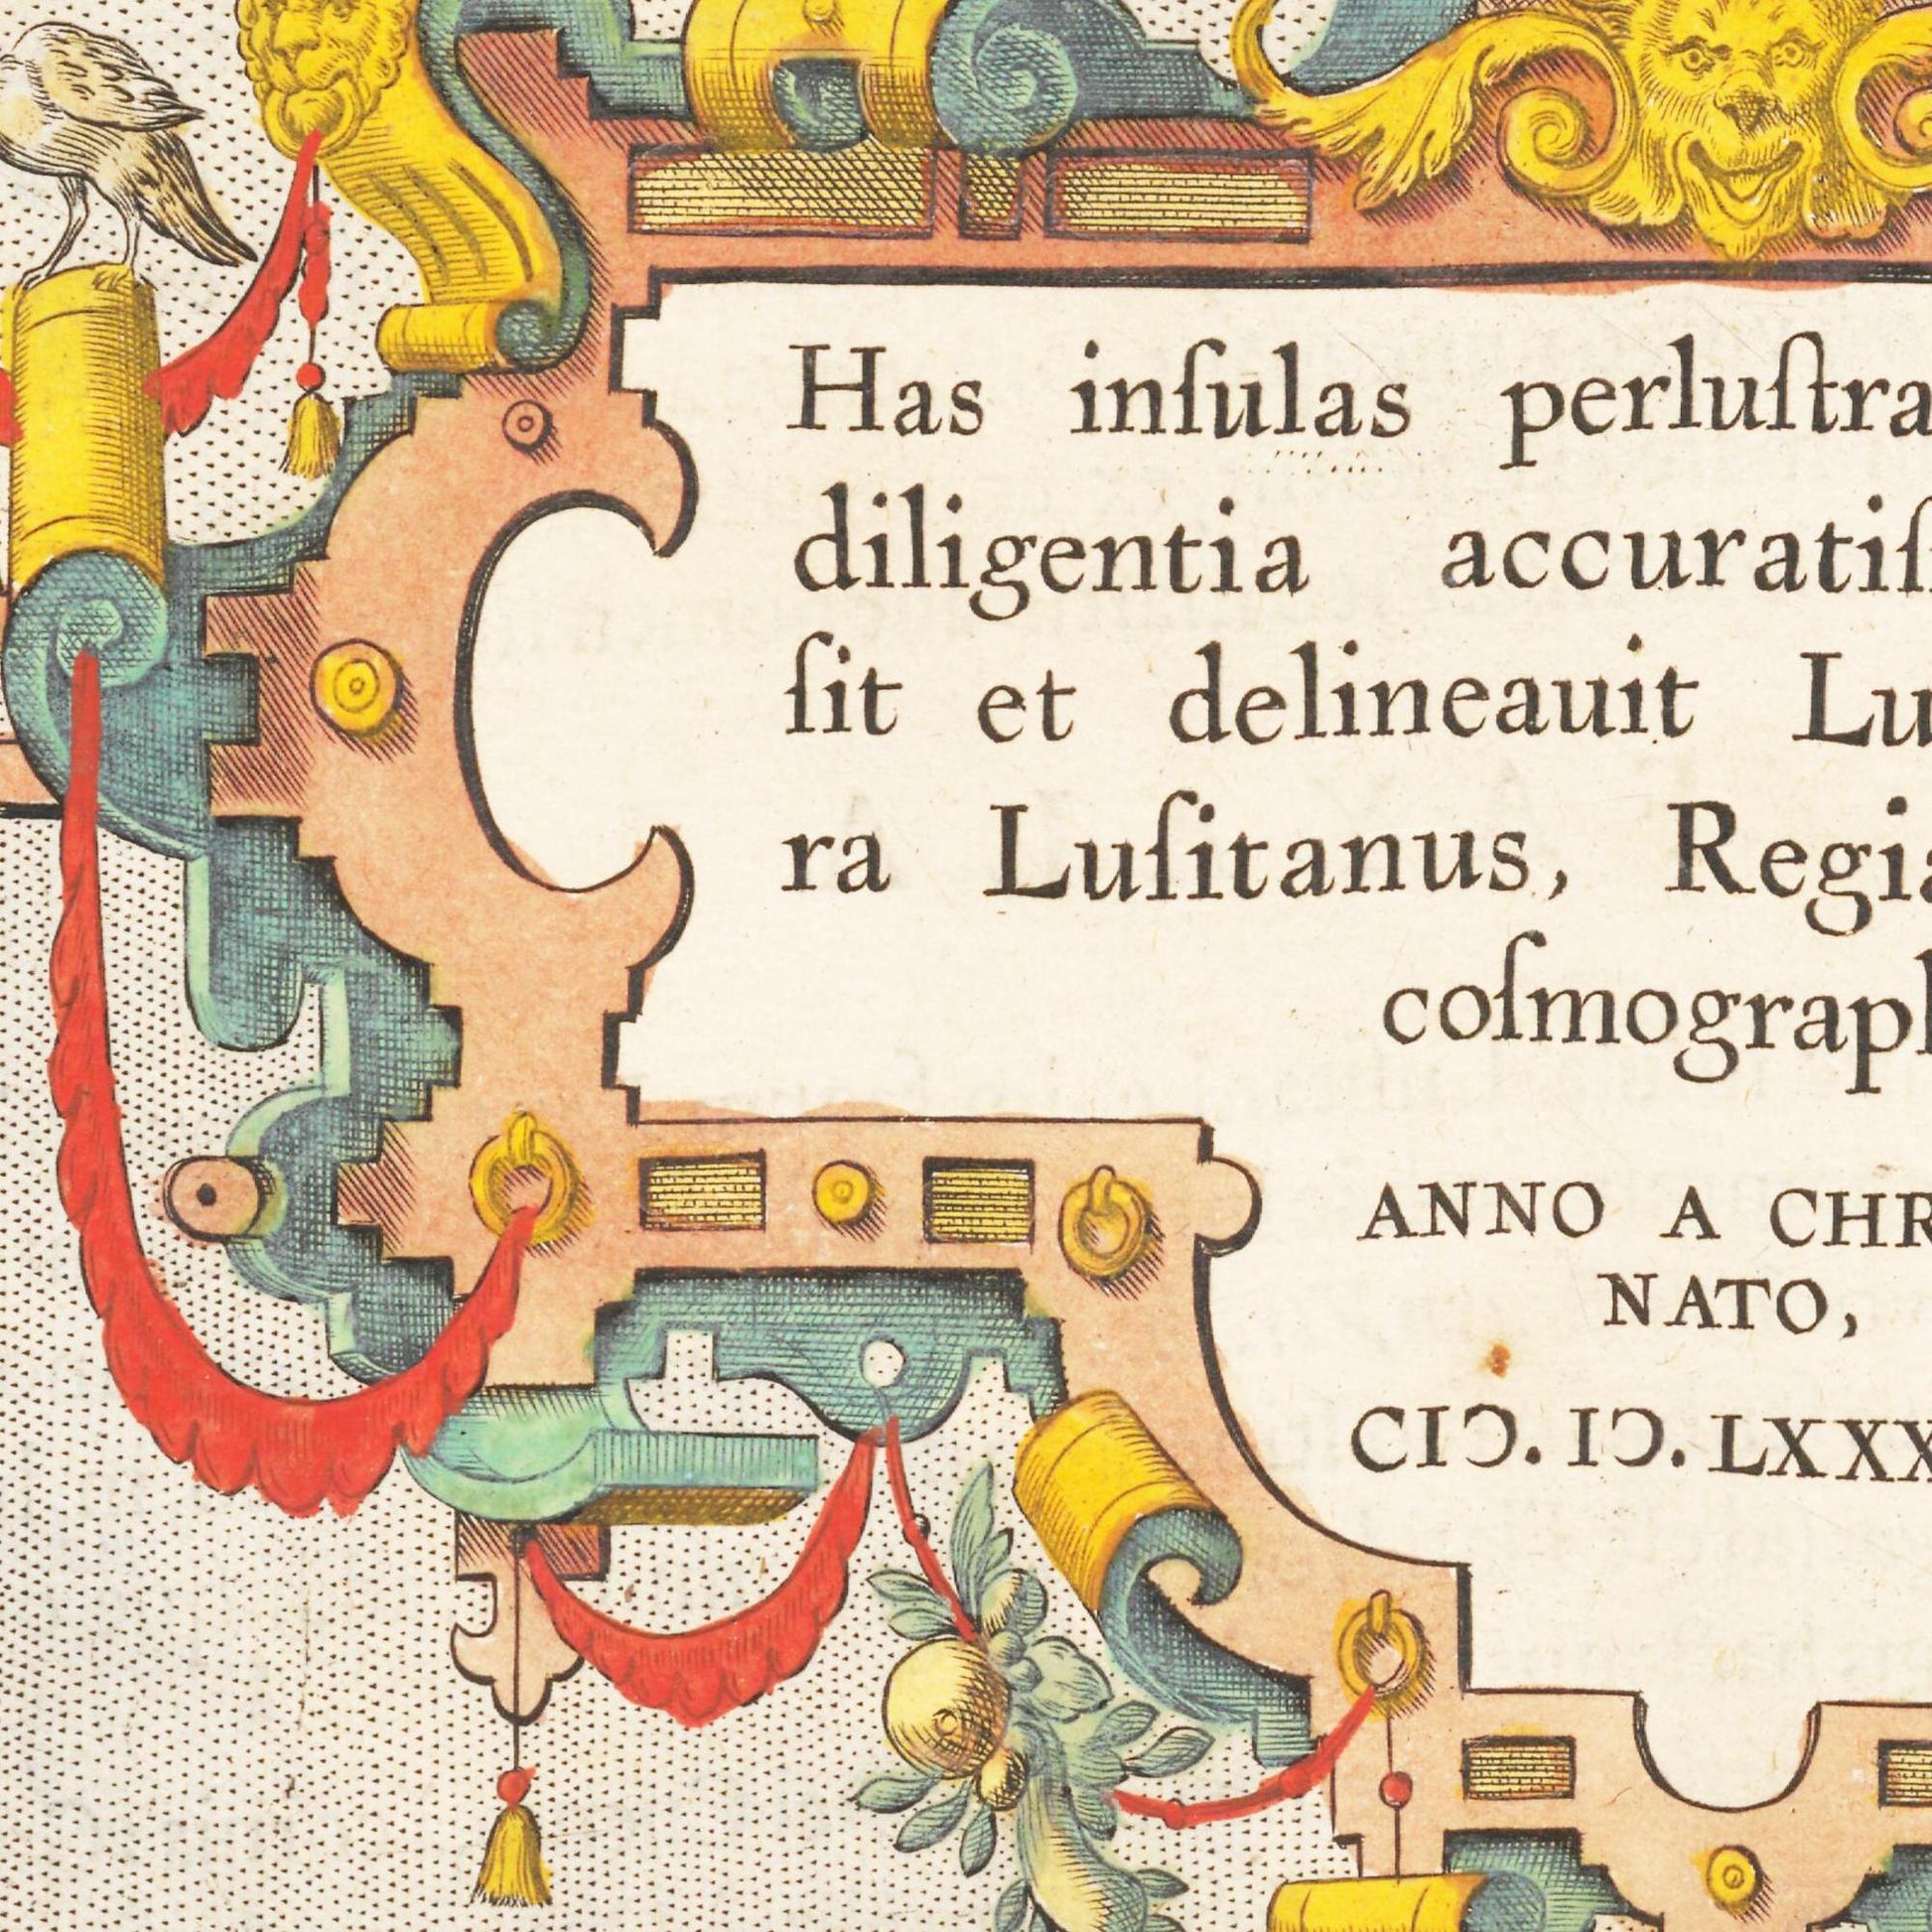 Has inſulas perluſtra
diligentia accuratiſ
ſit et delineauit Lu
ra Luſitanus, Regia
coſmograph
ANNO A CHR
NATO,
CIƆ. IƆ. LXXX